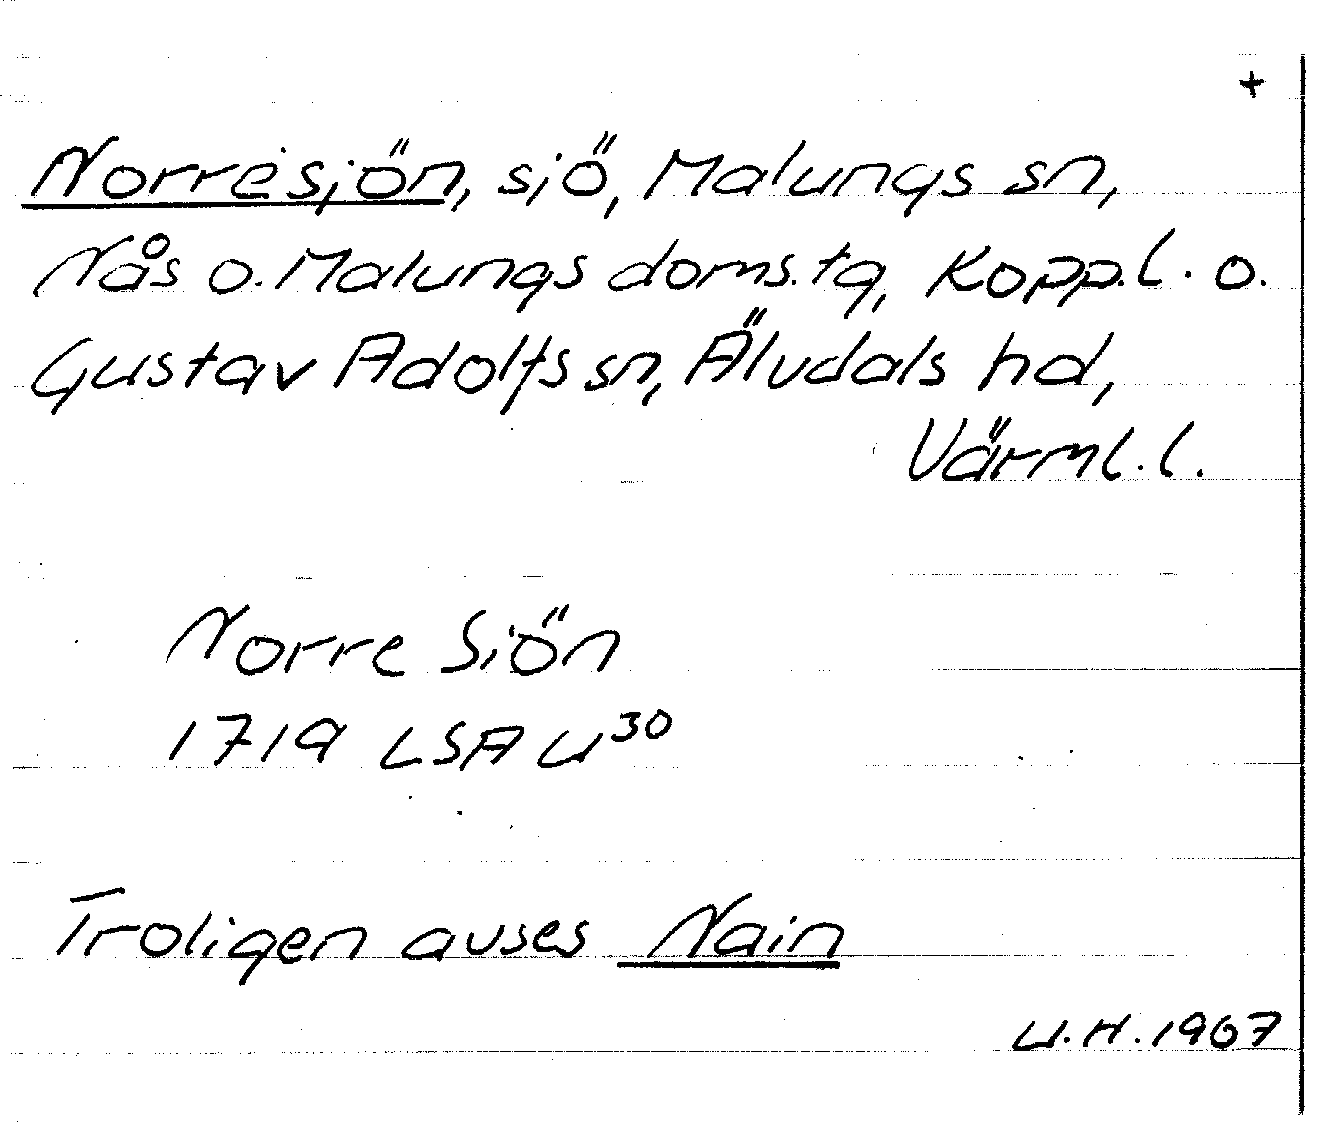 +
Norresjön, sjö, Malungs sn,
Nås o. Malungs doms. tg, Kopp. l. o.
Gustav Adolfs sn, Älvdals hd,
Värml. l.
Norre Siön
1719 LSA U30
Troligen avses Nain
U.H. 1967